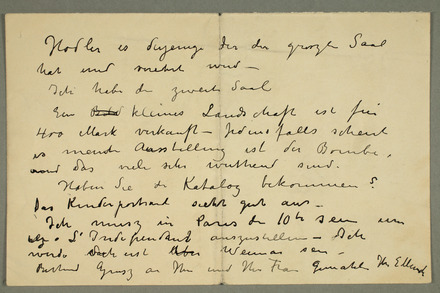 Hodler is diejenige der den groszten Saal
hat und verehrt wird —
Ich habe den zweiten Saal
Ein kleines Landschaft ist für
400 Mark verkauft — Jedenfalls scheint
es meine Ausstellung ist der Bombe,
und das viele sehr wuthend sind.
Haben Sie de Katalog bekommen?
Das Kinderportrait sieht gut aus —
Ich musz in Paris den 10ten sein um
L'Indépendant auszustellen — Ich
werde erst Weimar sein —
Grusz an Ihn und Ihr Frau Gemahlin Ihr